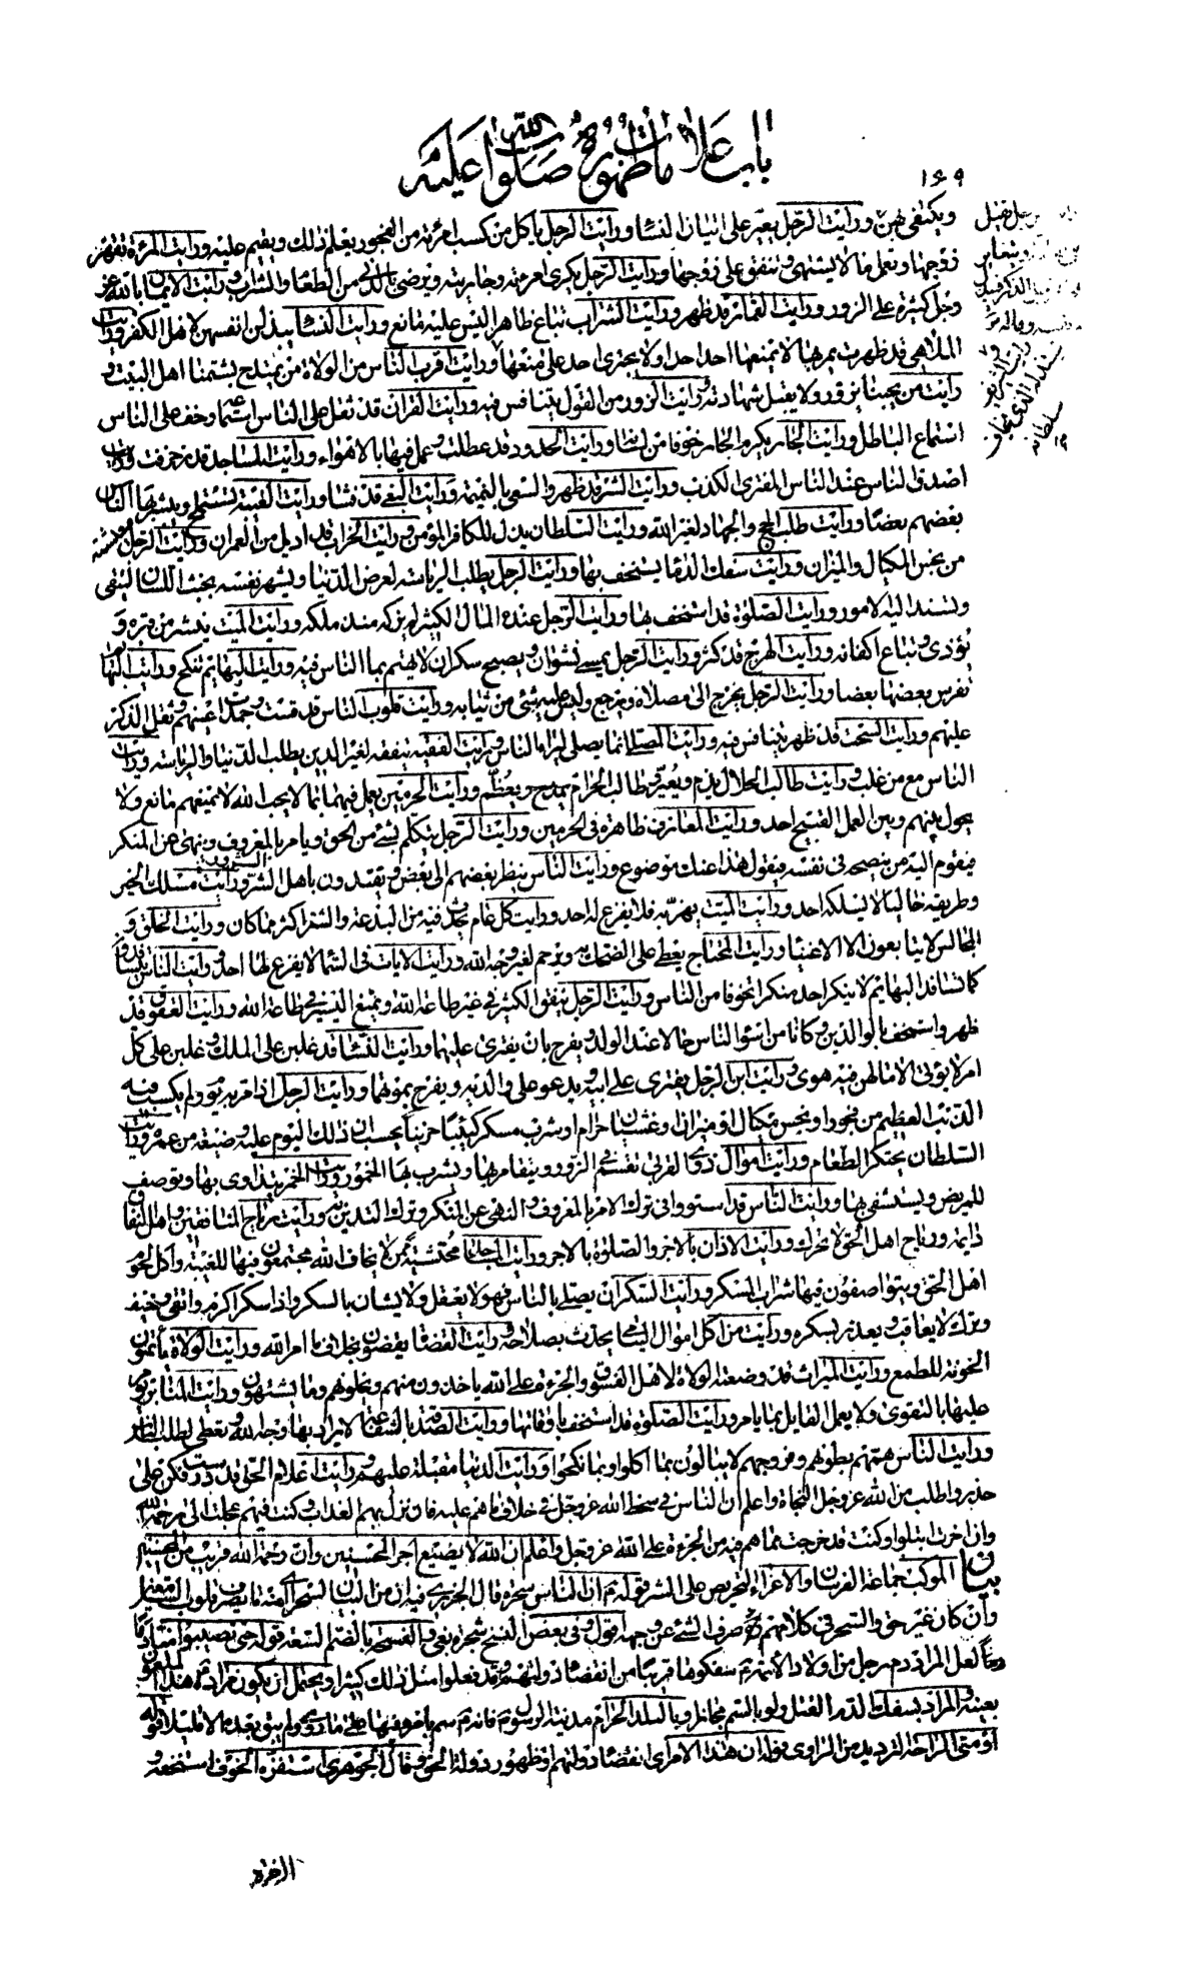 باب علامات ظهوره صلوات الله عليه
١٦٩
ويكتفي بهن ورأيت الرجل يعيّر على اتيان النساء ورأيت الرجل يأكل من كسب امرأته من الفجور يعلم ذلك ويقيم عليه ورأيت المرأة تقهر
زوجها وتعمل ما لا يشتهي وتنفق على زوجها ورأيت الرجل يكري امرأته وجاريته ويرضى بالدني من الطعام والشراب ورأيت الايمان بالله عز
وجل كثيرة على الزور ورأيت القمار قد ظهر ورأيت الشراب تباع ظاهرا ليس عليه مانع ورأيت النساء يبذلن انفسهن لاهل الكفر ورأيت
الملاهي قد ظهرت يمر بها لا يمنعها احد احدا ولا يجتري احد على منعها ورأيت اقرب الناس من الولاة من يمتدح بشتمنا اهل البيت و
رأيت من يحبنا يزوّر ولا يقبل شهادته ورأيت الزور من القول يتنافس فيه ورأيت القرآن قد ثقل على الناس استماعه وخف على الناس
استماع الباطل ورأيت الجار يكرم الجار خوفا من لسانه ورأيت الحدود قد عطلت وعمل فيها بالاهواء ورأيت المساجد قد زخرفت ورأيت
اصدق الناس عند الناس المفتري الكذب ورأيت الشر قد ظهر والسعي بالنميمة ورأيت البغي قد فشا ورأيت الغيبة تستملح ويبشر بها الناس
بعضهم بعضا ورأيت طلب الحج والجهاد لغير الله ورأيت السلطان يذل للكافر المؤمن ورأيت الخراب قد اديل من العمران ورأيت الرجل معيشته
من بخس المكيال والميزان ورأيت سفك الدماء يستخف بها ورأيت الرجل يطلب الرياسة لعرض الدنيا ويشهر نفسه بخبث اللسان ليتقى
وتسند اليه الامور ورأيت الصلوة قد استخف بها ورأيت الرجل عنده المال الكثير لم يزكه منذ ملكه ورأيت الميت ينشر من قبره و
يؤذى وتباع اكفانه ورأيت الهرج قد كثر ورأيت الرجل يمسي نشوان ويصبح سكران لا يهتم بما الناس فيه ورأيت البهائم تنكح ورأيت البهائم
تفرس بعضها بعضا ورأيت الرجل يخرج الى مصلاه ويرجع وليس عليه شيء من ثيابه ورأيت قلوب الناس قد قست وجمدت اعينهم وثقل الذكر
عليهم ورأيت السحت قد ظهر يتنافس فيه ورأيت المصلي انما يصلي ليراه الناس ورأيت الفقيه يتفقه لغير الدين يطلب الدنيا والرياسة ورأيت
الناس مع من غلب ورأيت طالب الحلال يذم ويعيّر وطالب الحرام يمدح ويعظّم ورأيت الحرمين يعمل فيهما بما لا يحب الله لا يمنعهم مانع ولا
يحول بينهم وبين العمل القبيح احد ورأيت المعازف ظاهرة في الحرمين ورأيت الرجل يتكلم بشيء من الحق ويأمر بالمعروف وينهى عن المنكر
فيقوم اليه من ينصحه في نفسه فيقول هذا عنك موضوع ورأيت الناس ينظر بعضهم الى بعض ويقتدون باهل الشرور ورأيت مسلك الخير
وطريقه خاليا لا يسلكه احد ورأيت الميت يهزّ به فلا يفزع له احد ورأيت كل عام يحدث فيه من البدعة والشر اكثر مما كان ورأيت الخلق و
المجالس لا يتابعون الا الاغنياء ورأيت المحتاج يعطى على الضحك به ويرحم لغير وجه الله ورأيت الايات في السماء لا يفزع لها احد ورأيت الناس يتسافدون
كما تتسافد البهائم لا ينكر احد منكرا تخوفا من الناس ورأيت الرجل ينفق الكثير في غير طاعة الله ويمنع اليسير في طاعة الله ورأيت العقوق قد
ظهر واستخف بالوالدين وكانا من اسوء الناس حالا عند الولد ويفرح بان يفترى عليهما ورأيت النساء قد غلبن على الملك وغلبن على كل
امر لا يؤتى الا ما لهن فيه هوى ورأيت ابن الرجل يفتري على ابيه ويدعو على والديه ويفرح بموتهما ورأيت الرجل اذا مر به يوم ولم يكسب فيه
الذنب العظيم من فجور او بخس مكيال او ميزان او غشيان حرام او شرب مسكر كئيبا حزينا يحسب ان ذلك اليوم عليه وضيعة من عمره ورأيت
السلطان يحتكر الطعام ورأيت اموال ذوي القربى تقسم في الزور ويتقامر بها ويشرب بها الخمور ورأيت الخمر يتداوى بها وتوصف
للمريض ويستشفى بها ورأيت الناس قد استووا في ترك الامر بالمعروف والنهي عن المنكر وترك التدين به ورأيت رياح المنافقين واهل النفاق
دائمة ورياح اهل الحق لا تحرك ورأيت الاذان بالاجر والصلوة بالاجر ورأيت المساجد محتشية ممن لا يخاف الله مجتمعون فيها للغيبة واكل لحوم
اهل الحق ويتواصفون فيها شراب المسكر ورأيت السكران يصلي بالناس فهو لا يعقل ولا يشان بالسكر واذا سكر اكرم واتقي وخيف
وترك لا يعاقب ويعذر بسكره ورأيت من اكل اموال اليتامى يحدث بصلاحه ورأيت القضاة يقضون بخلاف ما امر الله ورأيت الولاة يأتمنون
الخونة للطمع ورأيت الميراث قد وضعته الولاة لاهل الفسوق والجرءة على الله يأخذون منهم ويخلونهم وما يشتهون ورأيت المنابر يؤمر
عليها بالتقوى ولا يعمل القايل بما يأمر ورأيت الصلوة قد استخف باوقاتها ورأيت الصدقة بالشفاعة لا يراد بها وجه الله وتعطى لطلب الناس
ورأيت الناس همهم بطونهم وفروجهم لا يبالون بما اكلوا وبما نكحوا ورأيت الدنيا مقبلة عليهم ورأيت اعلام الحق قد درست فكن على
حذر واطلب من الله عز وجل النجاة واعلم ان الناس في سخط الله عز وجل في خلاف ما هم عليه فان نزل بهم العذاب وكنت فيهم عجلت الى رحمة الله
وان اخرت ابتلوا وكنت قد خرجت مما هم فيه من الجرءة على الله عز وجل واعلم ان الله لا يضيع اجر المحسنين وان رحمة الله قريب من المحسنين
بيان الموكب جماعة الفرسان والاغراء التحريص على الشر قوله ثم ان الناس سحرة قال الجزري فيه ان من البيان لسحرا اي منه ما يصرف قلوب السامعين
وان كان غير حق والسحر في كلامهم صرف الشيء عن وجهه اقول وفي بعض النسخ شجرة بغي والفسحة بالضم السعة قوله حتى تصيبوا منا دما
لعل المراد دم رجل من اولاد الائمة سفكوها قريبا من انقضاء دولتهم وقد فعلوا مثل ذلك كثيرا ويحتمل ان يكون مراده هذا الملعون
بعينه والمراد بسفك الدم القتل ولو بالسم مجازا وبالبلد الحرام مدينة الرسول فانه سم بامره فيها على ما روي ولم يبق بعده الا قليلا قوله
او متى الراحة الترديد من الراوي قوله ان هذا الامر اي انقضاء دولتهم او ظهور دولة الحق وقال الجوهري استفزه الخوف استخفه و
الخزه